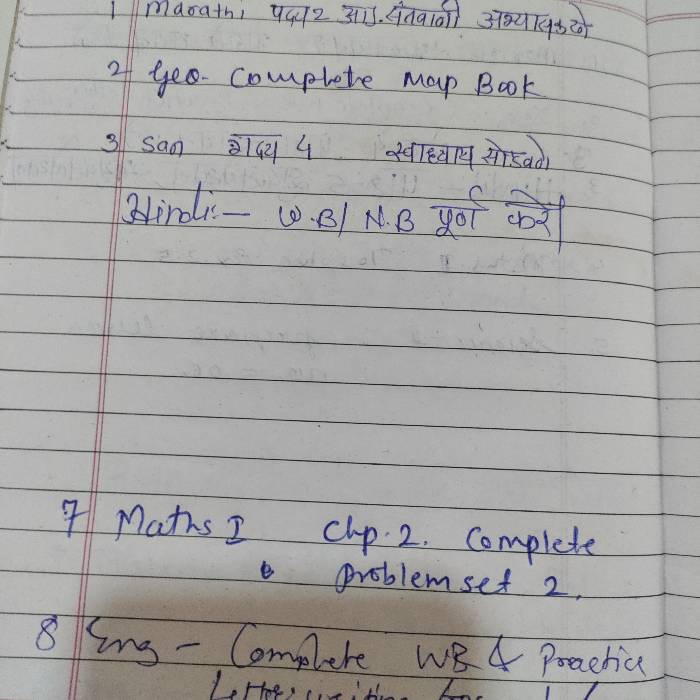 1 Marathi पद्य 2 अ). संतवाणी अभ्यास करणे
2 Geo. Complete Map Book
3 San गद्य 4 स्वाध्याय सोडवणे
Hindi:— W.B/ N.B पूर्ण करें|
7 Maths I Chp. 2. Complete
Problem set 2.
8 Eng - Complete WB & Practice
Letter writing